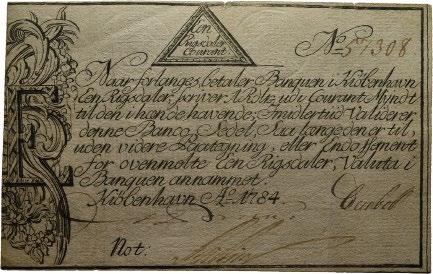 Een
Rigsdaler
Courant
No 57308
Naar forlanges, betaler Banquen i Kiøbenhavn
Een Rigsdaler, skriver 1 Rdlr. ud i Courant Mÿndt
til den i hænde havende; Imidlertid Validerer
denne Banco-Sedel, saa længe den er til,
uden videre Paategning, eller Endossement
for ovenmelte Een Rigsdaler, Valuta i
Banquen annammet.
Kiöbenhavn Ao. 1784.
Not: